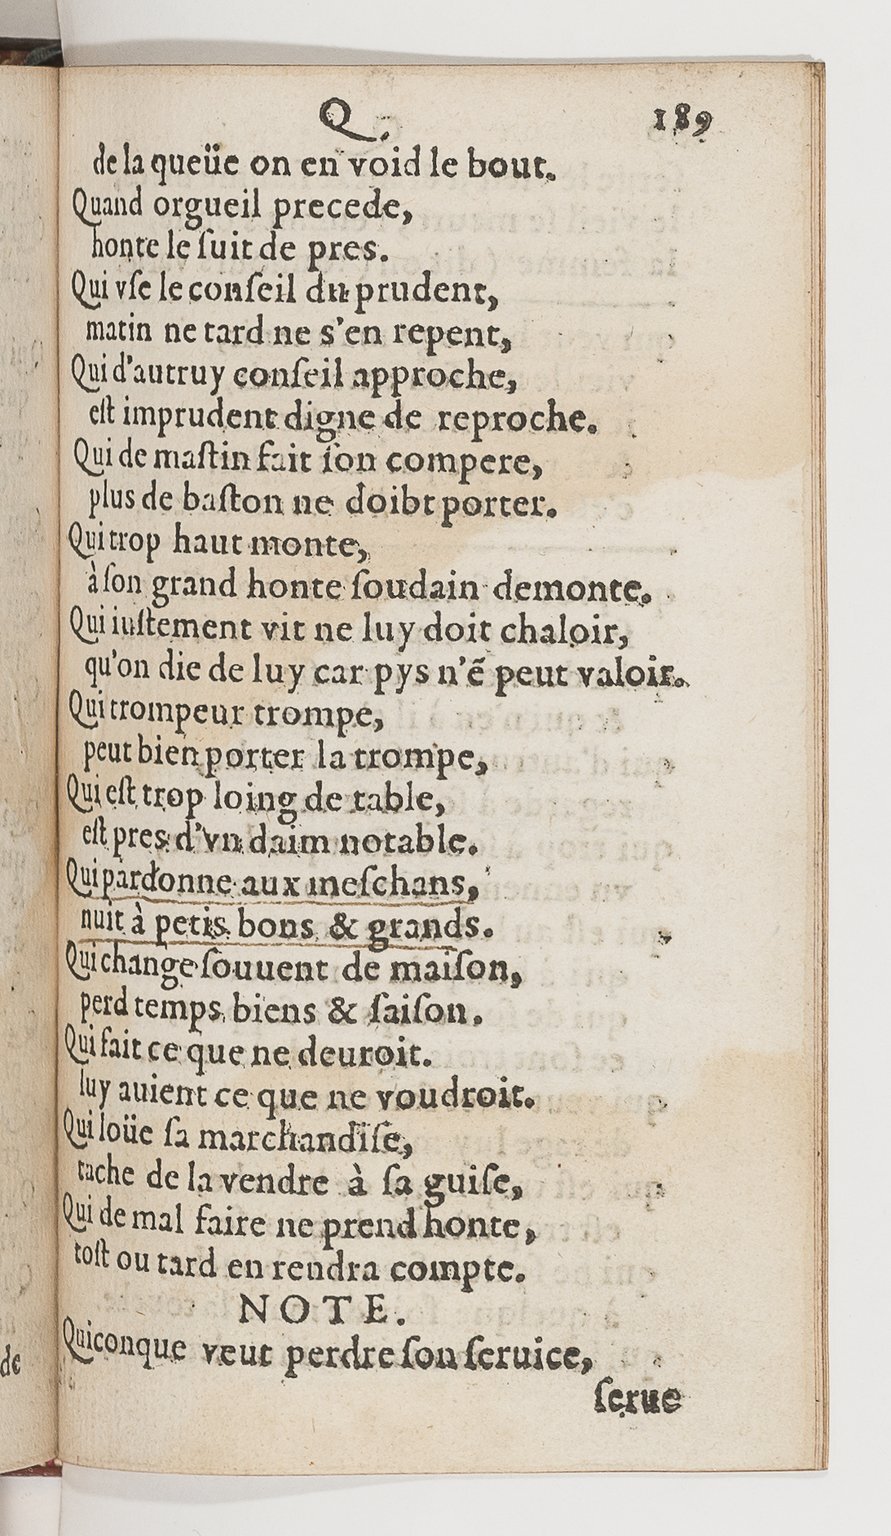 Q.
189
de la queüe on en void le bout.
Quand orgueil precede,
honte le ſuit de pres.
Qui vſe le conſeil du prudent,
matin ne tard ne s'en repent,
Qui d'autruy conſeil approche,
eſt imprudent digne de reproche.
Qui de maſtin fait ſon compere,
plus de baſton ne doibt porter.
Qui trop haut monte,
à ſon grand honte ſoudain demonte.
Qui iuſtement vit ne luy doit chaloir,
qu'on die de luy car pys n'ẽ peut valoir.
Qui trompeur trompe,
peut bien porter la trompe,
Qui eſt trop loing de table,
eſt pres d'vn daim notable.
Qui pardonne aux meſchans,
nuit à petis bons & grands.
Qui change ſouuent de maiſon,
perd temps biens & ſaiſon.
Qui fait ce que ne deuroit.
luy auient ce que ne voudroit.
Qui loüe ſa marchandiſe,
tache de la vendre à ſa guiſe,
Qui de mal faire ne prend honte,
toſt ou tard en rendra compte.
NOTE.
Quiconque veut perdre ſon ſeruice,
ſerue
de